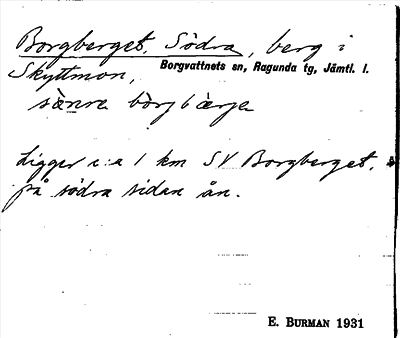 Borgberget, Södra, berg i
Borgvattnets sn, Ragunda tg, Jämtl. l.
Skyttmon,
sȧnra bȯrjbärja
Ligger c:a 1 km SV Borgberget,
på södra sidan ån.
E. BURMAN 1931